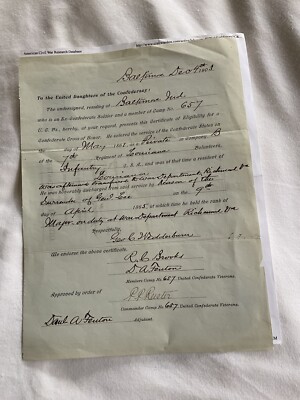 American Civil War Research Database
Baltimore Dec 9th 1908
To the United Daughters of the Confederacy:
The undersigned, residing at Baltimore Md.
who is an Ex-Confederate Soldier and member of Camp No. 657
U.C. V., hereby, at your request, presents this Certificate of Eligibility for a
Confederate Cross of Honor. He entered the service of the Confederate States on
day of May 1861 as Private in Company B
7th Regiment of Louisiana Volunteers,
Infantry C.S.A., and was at that time a resident of
Louisiana
was afterwards transferred to War Department, Richmond Va
He was honorably discharged from said service by reason of the
Surrender of Genl. Lee on the 9th
day of April 1865 at which time he held the rank of
Major on duty at War Department Richmond Va
Respectfully,
Geo C Wedderburn
We endorse the above certificate.
R. C. Brooks
D. A. Fenton
Members Camp No. 657, United Confederate Veterans.
Approved by order of
Commander Camp No. 657, United Confederate Veterans.
Danl A. Fenton Adjutant.